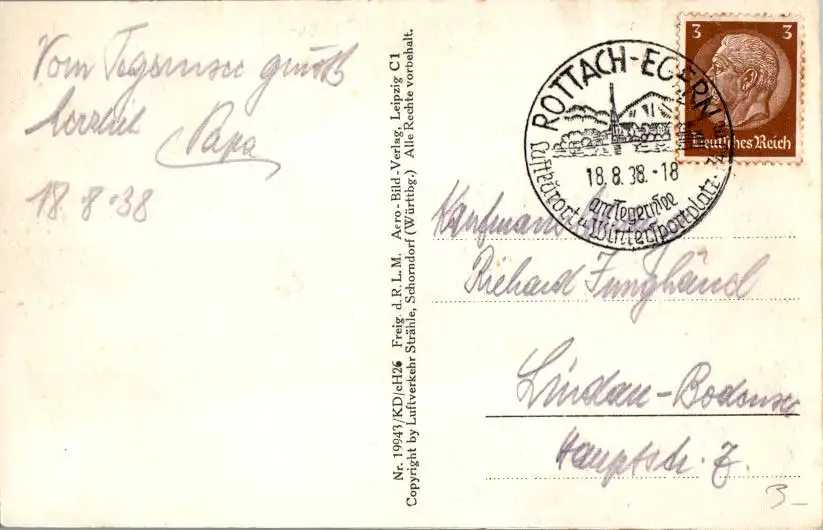 Vom Tegernsee grüßt
herzlich Papa
18·8·38
Nr. 19943/KD/cH26 Freig. d. R.L.M. Aero-Bild-Verlag, Leipzig C1
Copyright by Luftverkehr Strähle, Schorndorf (Württbg.) Alle Rechte vorbehalt.
3 3
Deutsches Reich
ROTTACH-EGERN
18.8.38.-18
am Tegernsee
Luftkurort u. Wintersportplatz
Kaufmann
Richard Junghänel
Lindau-Bodensee
Hauptstr. 7.